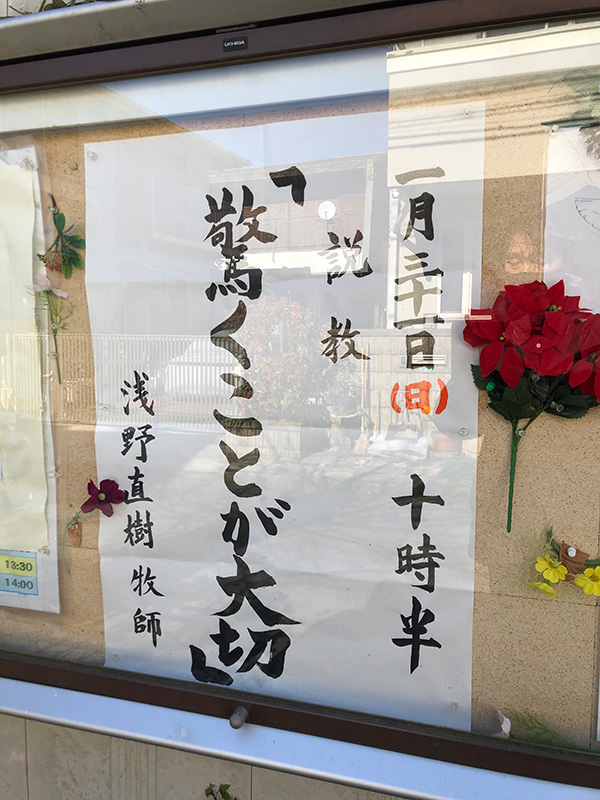 UCHIDA
一月三十一日(日) 十時半
説教
「驚くことが大切」
浅野直樹牧師
13:30
14:00